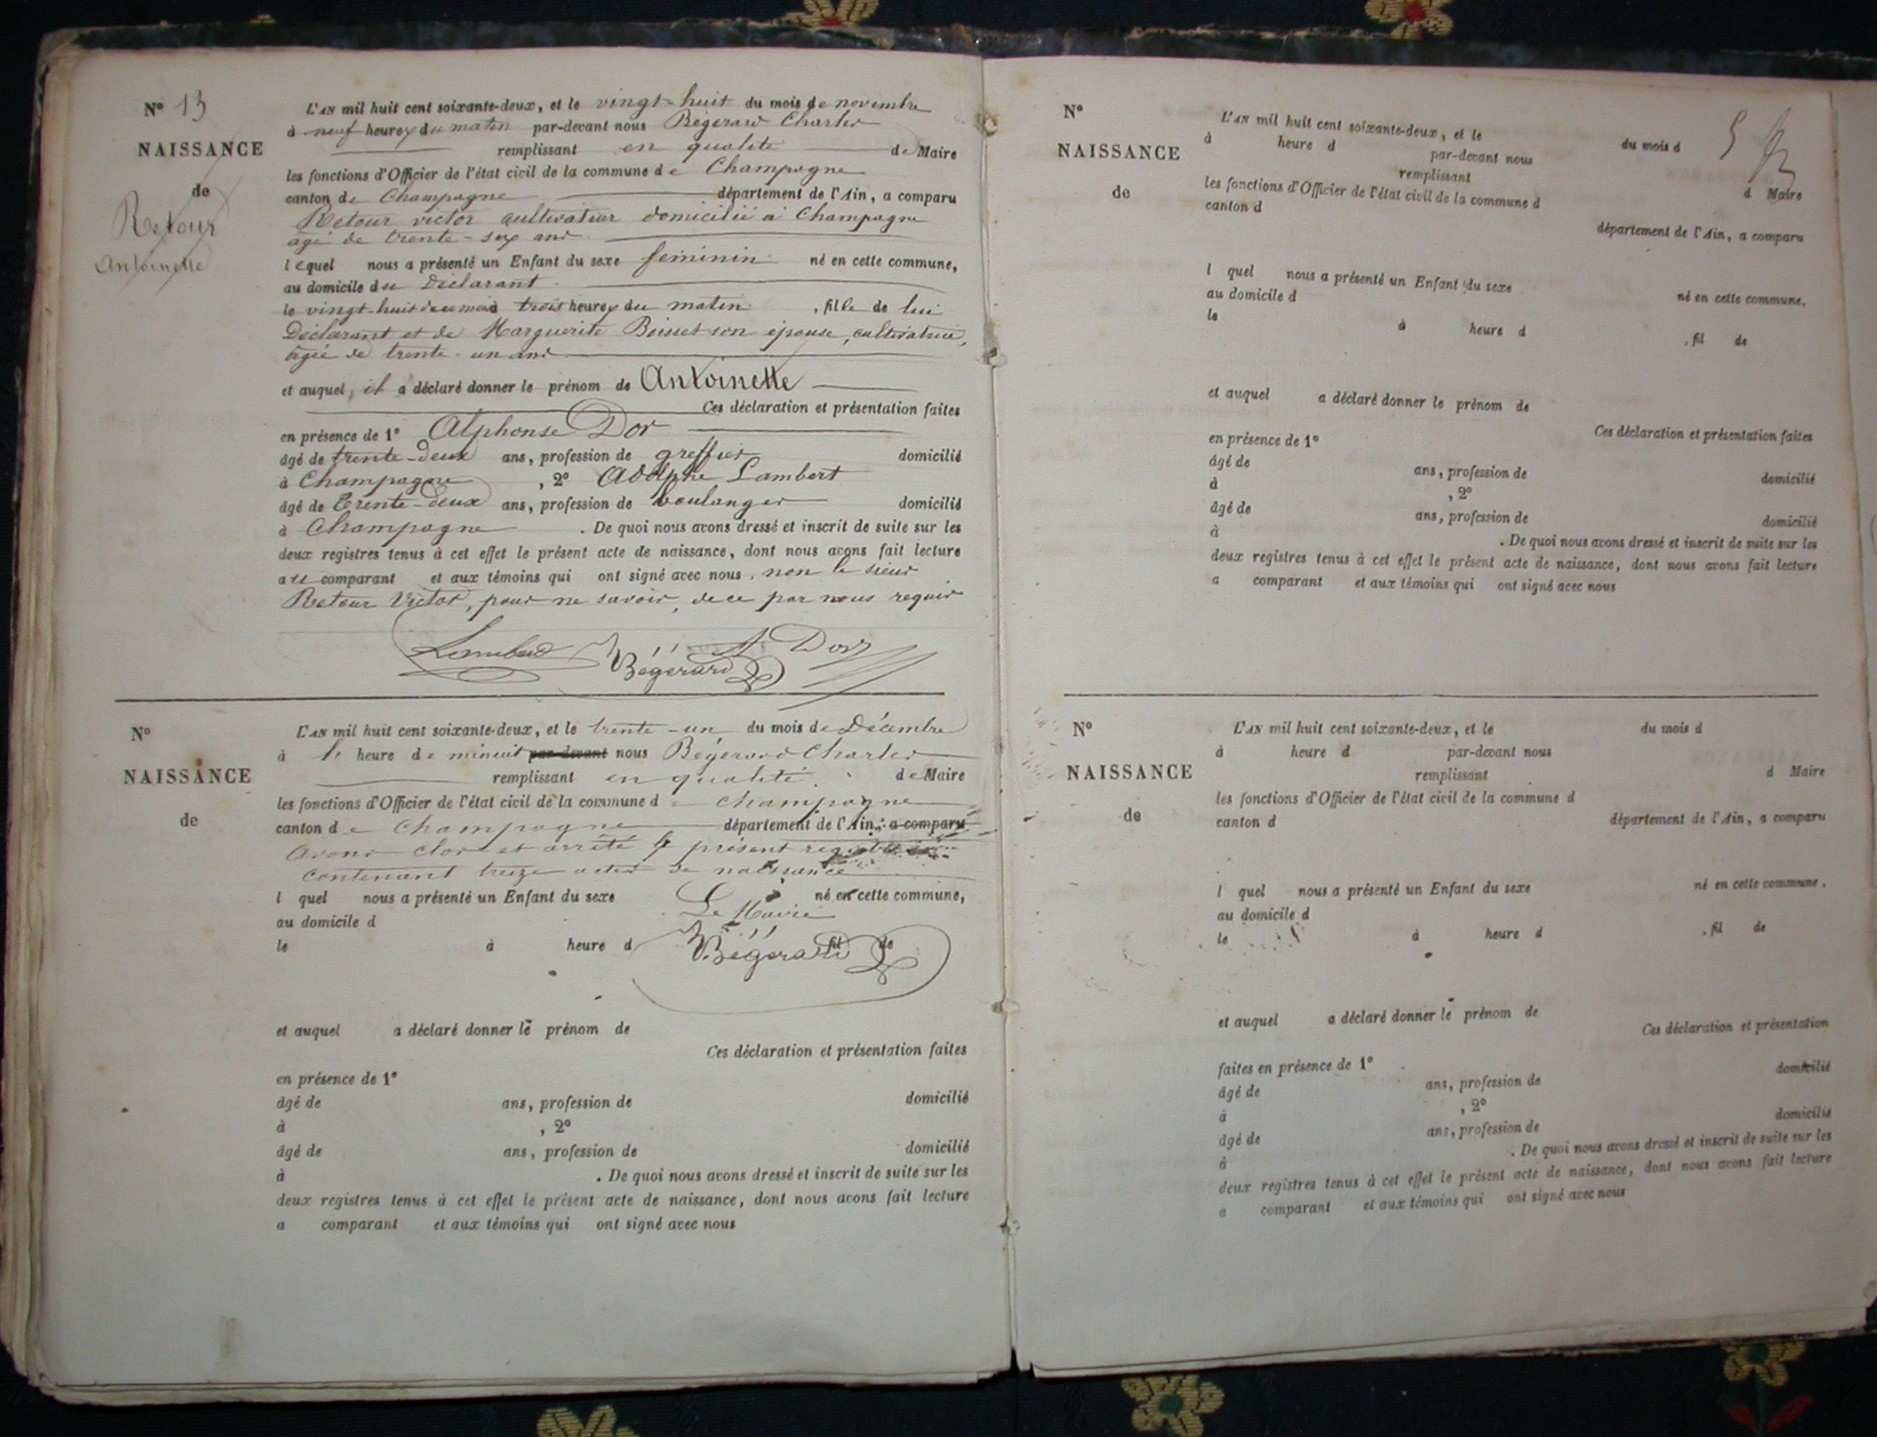 N° 13
NAISSANCE
de
Retour
Antoinette
L'AN mil huit cent soixante-deux, et le vingt-huit du mois de novembre
à neuf heures du matin par-devant nous Bégerard Charles
remplissant en qualité de Maire
les fonctions d'Officier de l'état civil de la commune de Champagne
canton de Champagne département de l'Ain, a comparu
Retour victor cultivateur domicilié à Champagne
agé de trente-six ans
lequel nous a présenté un Enfant du sexe feminin né en cette commune,
au domicile du Déclarant
le vingt-huit du mois à trois heures du matin, fille de lui
Déclarant et de Marguerite son épouse, cultivatrice,
agée de trente-un ans
et auquel, il a déclaré donner le prénom de Antoinette
Ces déclaration et présentation faites
en présence de 1° Alphonse Dor
âgé de trente-deux ans, profession de greffier domicilié
à Champagne, 2° Adolphe Lambert
âgé de trente-deux ans, profession de boulanger domicilié
à Champagne. De quoi nous avons dressé et inscrit de suite sur les
deux registres tenus à cet effet le présent acte de naissance, dont nous avons fait lecture
au comparant et aux témoins qui ont signé avec nous, non le sieur
Retour Victor, pour ne savoir, de ce par nous requis
Lambert Bégerard A. Dor
N°
NAISSANCE
de
L'AN mil huit cent soixante-deux, et le trente-un du mois de Décembre
à l' heure de minuit par-devant nous Bégerard Charles
remplissant en qualité de Maire
les fonctions d'Officier de l'état civil de la commune de Champagne
canton de Champagne département de l'Ain, a comparu
avons clos et arrêté le présent registre
contenant treize actes de naissance
l quel nous a présenté un Enfant du sexe né en cette commune,
Le Maire
au domicile d
le à heure d fil de
Bégerard
et auquel a déclaré donner le prénom de
Ces déclaration et présentation faites
en présence de 1°
âgé de ans, profession de domicilié
à , 2°
âgé de ans, profession de domicilié
à . De quoi nous avons dressé et inscrit de suite sur les
deux registres tenus à cet effet le présent acte de naissance, dont nous avons fait lecture
a comparant et aux témoins qui ont signé avec nous
N°
NAISSANCE
de
L'AN mil huit cent soixante-deux, et le du mois d
à heure d par-devant nous
remplissant d Maire
les fonctions d'Officier de l'état civil de la commune d
canton d département de l'Ain, a comparu
l quel nous a présenté un Enfant du sexe né en cette commune,
au domicile d
le à heure d , fil de
et auquel a déclaré donner le prénom de
Ces déclaration et présentation faites
en présence de 1°
âgé de ans, profession de domicilié
à , 2°
âgé de ans, profession de domicilié
à . De quoi nous avons dressé et inscrit de suite sur les
deux registres tenus à cet effet le présent acte de naissance, dont nous avons fait lecture
a comparant et aux témoins qui ont signé avec nous
N°
NAISSANCE
de
L'AN mil huit cent soixante-deux, et le du mois d
à heure d par-devant nous
remplissant d Maire
les fonctions d'Officier de l'état civil de la commune d
canton d département de l'Ain, a comparu
l quel nous a présenté un Enfant du sexe né en cette commune,
au domicile d
le à heure d , fil de
et auquel a déclaré donner le prénom de
Ces déclaration et présentation
faites en présence de 1°
âgé de ans, profession de domicilié
à , 2°
âgé de ans, profession de domicilié
à . De quoi nous avons dressé et inscrit de suite sur les
deux registres tenus à cet effet le présent acte de naissance, dont nous avons fait lecture
a comparant et aux témoins qui ont signé avec nous